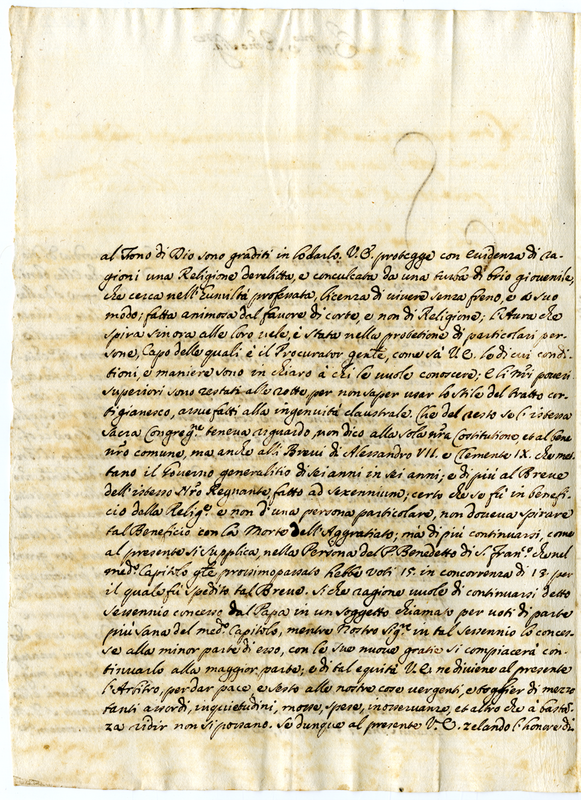 al Trono di Dio sono graditi in lodarlo. V. E. protegge con evidenza di ra-
gioni una Religione derelitta, e conculcata da una turba di brio giovenile,
che cerca nell'humiltà professata, licenza di vivere senza freno, e à suo
modo; fatta animosa dal favore di corte, e non di Religione; l'Aura che
spira sin'ora alle loro vele, è stata nella protetione di particolari per-
sone, Capo delle quali è il Procurator gen͠le, come sà V. E. le di cui condi-
tioni, e maniere sono in chiaro à chi le vuole conoscere. E li n͠ri poveri
superiori sono restati alle rotte, per non saper usar lo stile del tratto cor-
tigianesco, assuefatti alla ingenuità claustrale. Che del resto se l'istessa
Sacra Congreg.ne teneva riguardo, non dico alla sola n͠ra Costitutione, et al bene
n͠ro comune, ma anche alli Brevi di Alessandro VII. e Clemente IX. che mo-
strano il Governo generalitio di sei anni in sei anni; e di più al Breve
dell'istesso N͠ro Regnante, fatto ad sexennium; certo che se fù in benefi-
cio della Relig.e e non d'una persona particolare, non doveva spirare
tal Beneficio con la Morte dell'Aggratiato; ma di più continuarsi, come
al presente si supplica, nella Persona del P. Benedetto di S. Fran.co che nel
med.o Capitolo g͠le prossimo passato hebbe voti 15. in concorrenza di 13. per
il quale fù spedito tal Breve. Si che ragione vuole di continuarsi detto
sessennio concesso dal Papa in un soggetto chiamato per voti di parte
più sana del med.o Capitolo, mentre Nostro Sig.re in tal sessennio lo conces-
se alla minor parte di esso, con le sue nuove gratie si compiacerà con-
tinuarlo alla maggior parte; e di tal equità V. E. ne diviene al presente
l'Arbitro, per dar pace, e sesto alle nostre cose vergenti, e toglier di mezzo
tanti assordi, inquietudini, mosse, spese, inosservanze, et altro che à bastan-
za ridir non si possano. Se dunque al presente V. E. zelando l'honore di-